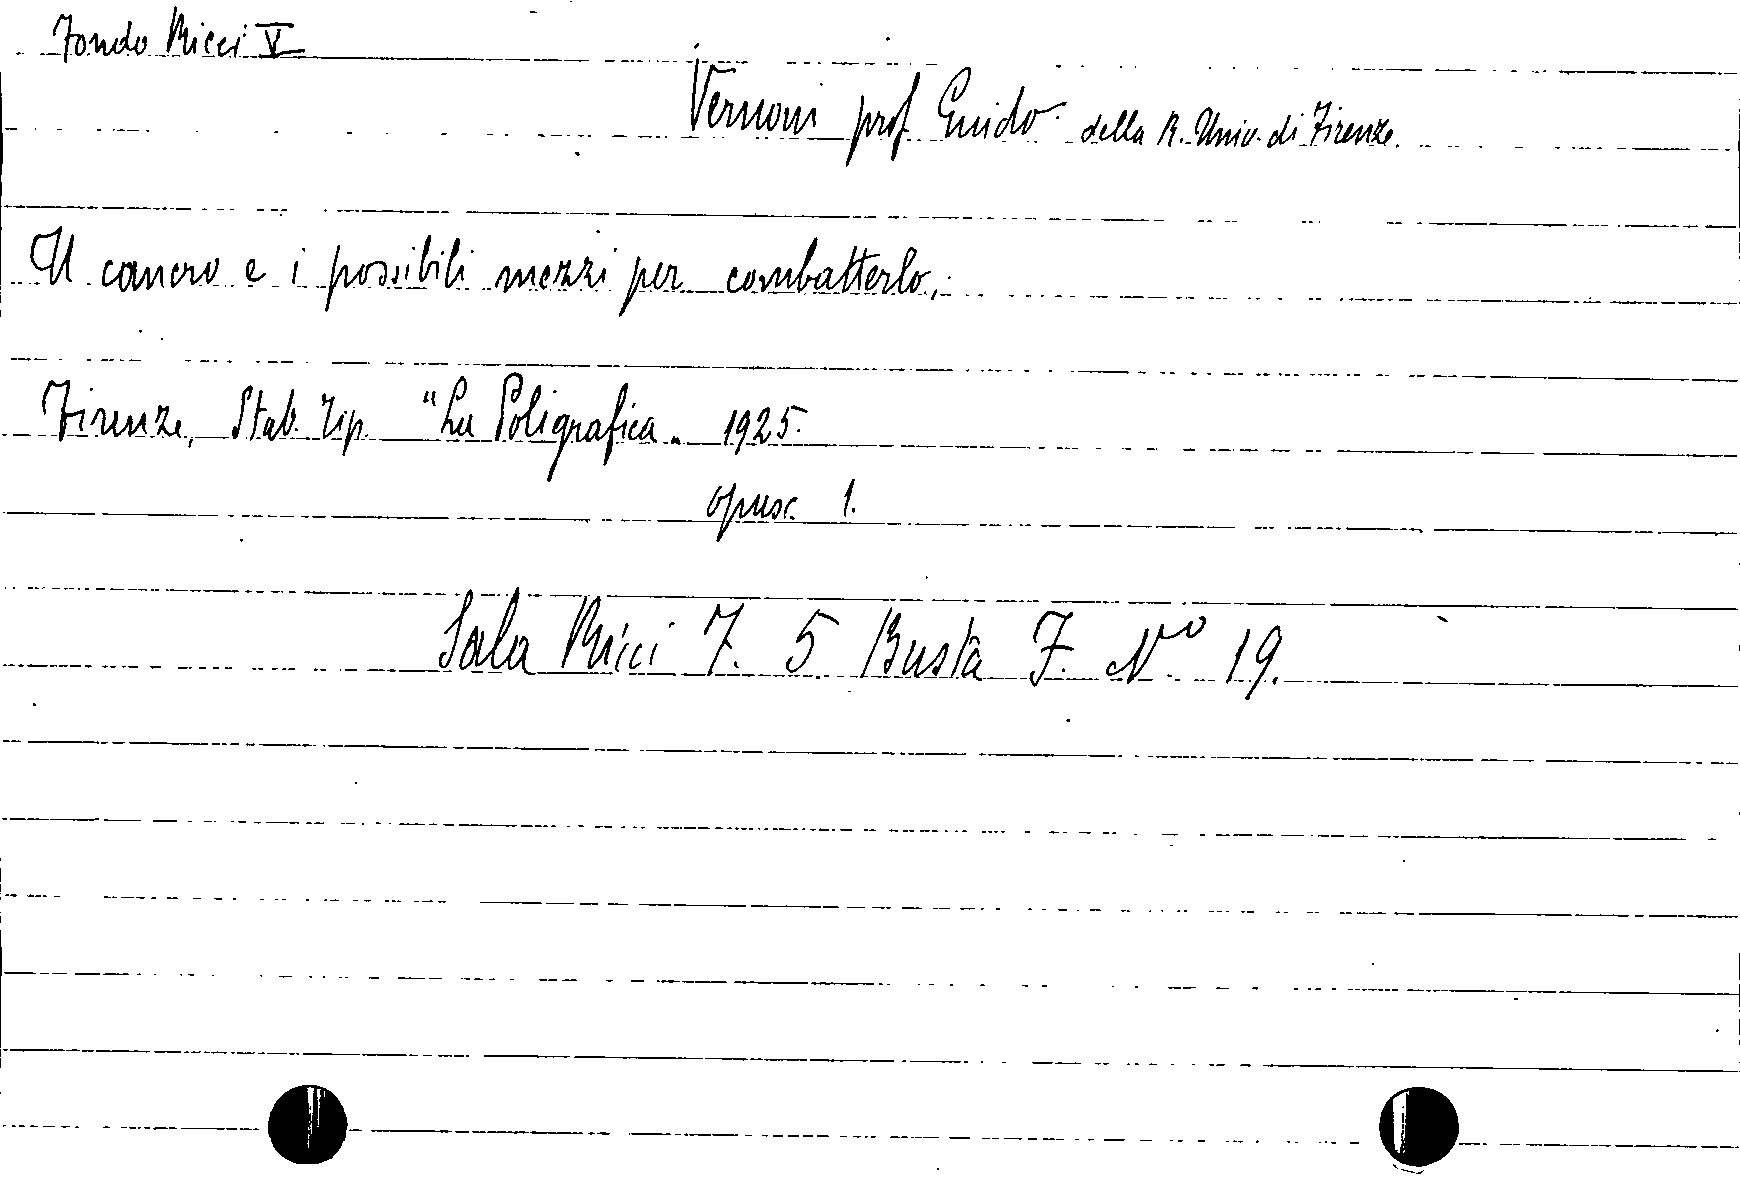 Fondo Ricci V
Vernoni prof. Guido della R. Univ. di Firenze.
Il cancro e i possibili mezzi per combatterlo.
Firenze, Stab. Tip. "La Poligrafica„ 1925.
opusc. 1.
Sala Ricci F. 5 Busta F. Nº 19.